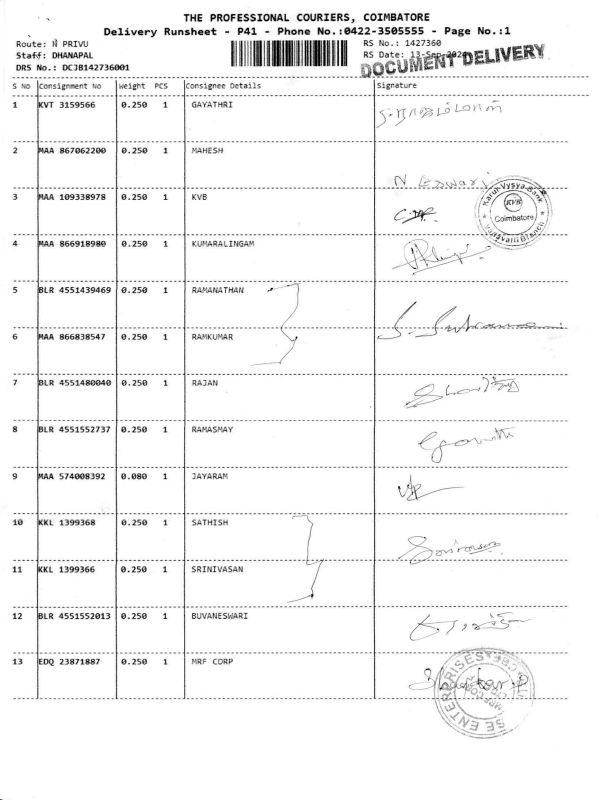 THE PROFESSIONAL COURIERS, COIMBATORE
Delivery Runsheet - P41 - Phone No.:0422-3505555 - Page No.:1
Route: N PRIVU RS No.: 1427360
Staff: DHANAPAL RS Date: 13-Sep-2024
DRS No.: DCJB142736001 DOCUMENT DELIVERY
S No Consignment No Weight PCS Consignee Details Signature
1 KVT 3159566 0.250 1 GAYATHRI
2 MAA 867062200 0.250 1 MAHESH
N Eswari
3 MAA 109338978 0.250 1 KVB
Karur Vysya Bank
KVB
Coimbatore
Vadavalli Branch
4 MAA 866918980 0.250 1 KUMARALINGAM
5 BLR 4551439469 0.250 1 RAMANATHAN
6 MAA 866838547 0.250 1 RAMKUMAR
7 BLR 4551480040 0.250 1 RAJAN
8 BLR 4551552737 0.250 1 RAMASMAY
9 MAA 574008392 0.080 1 JAYARAM
10 KKL 1399368 0.250 1 SATHISH
11 KKL 1399366 0.250 1 SRINIVASAN
12 BLR 4551552013 0.250 1 BUVANESWARI
13 EDQ 23871887 0.250 1 MRF CORP